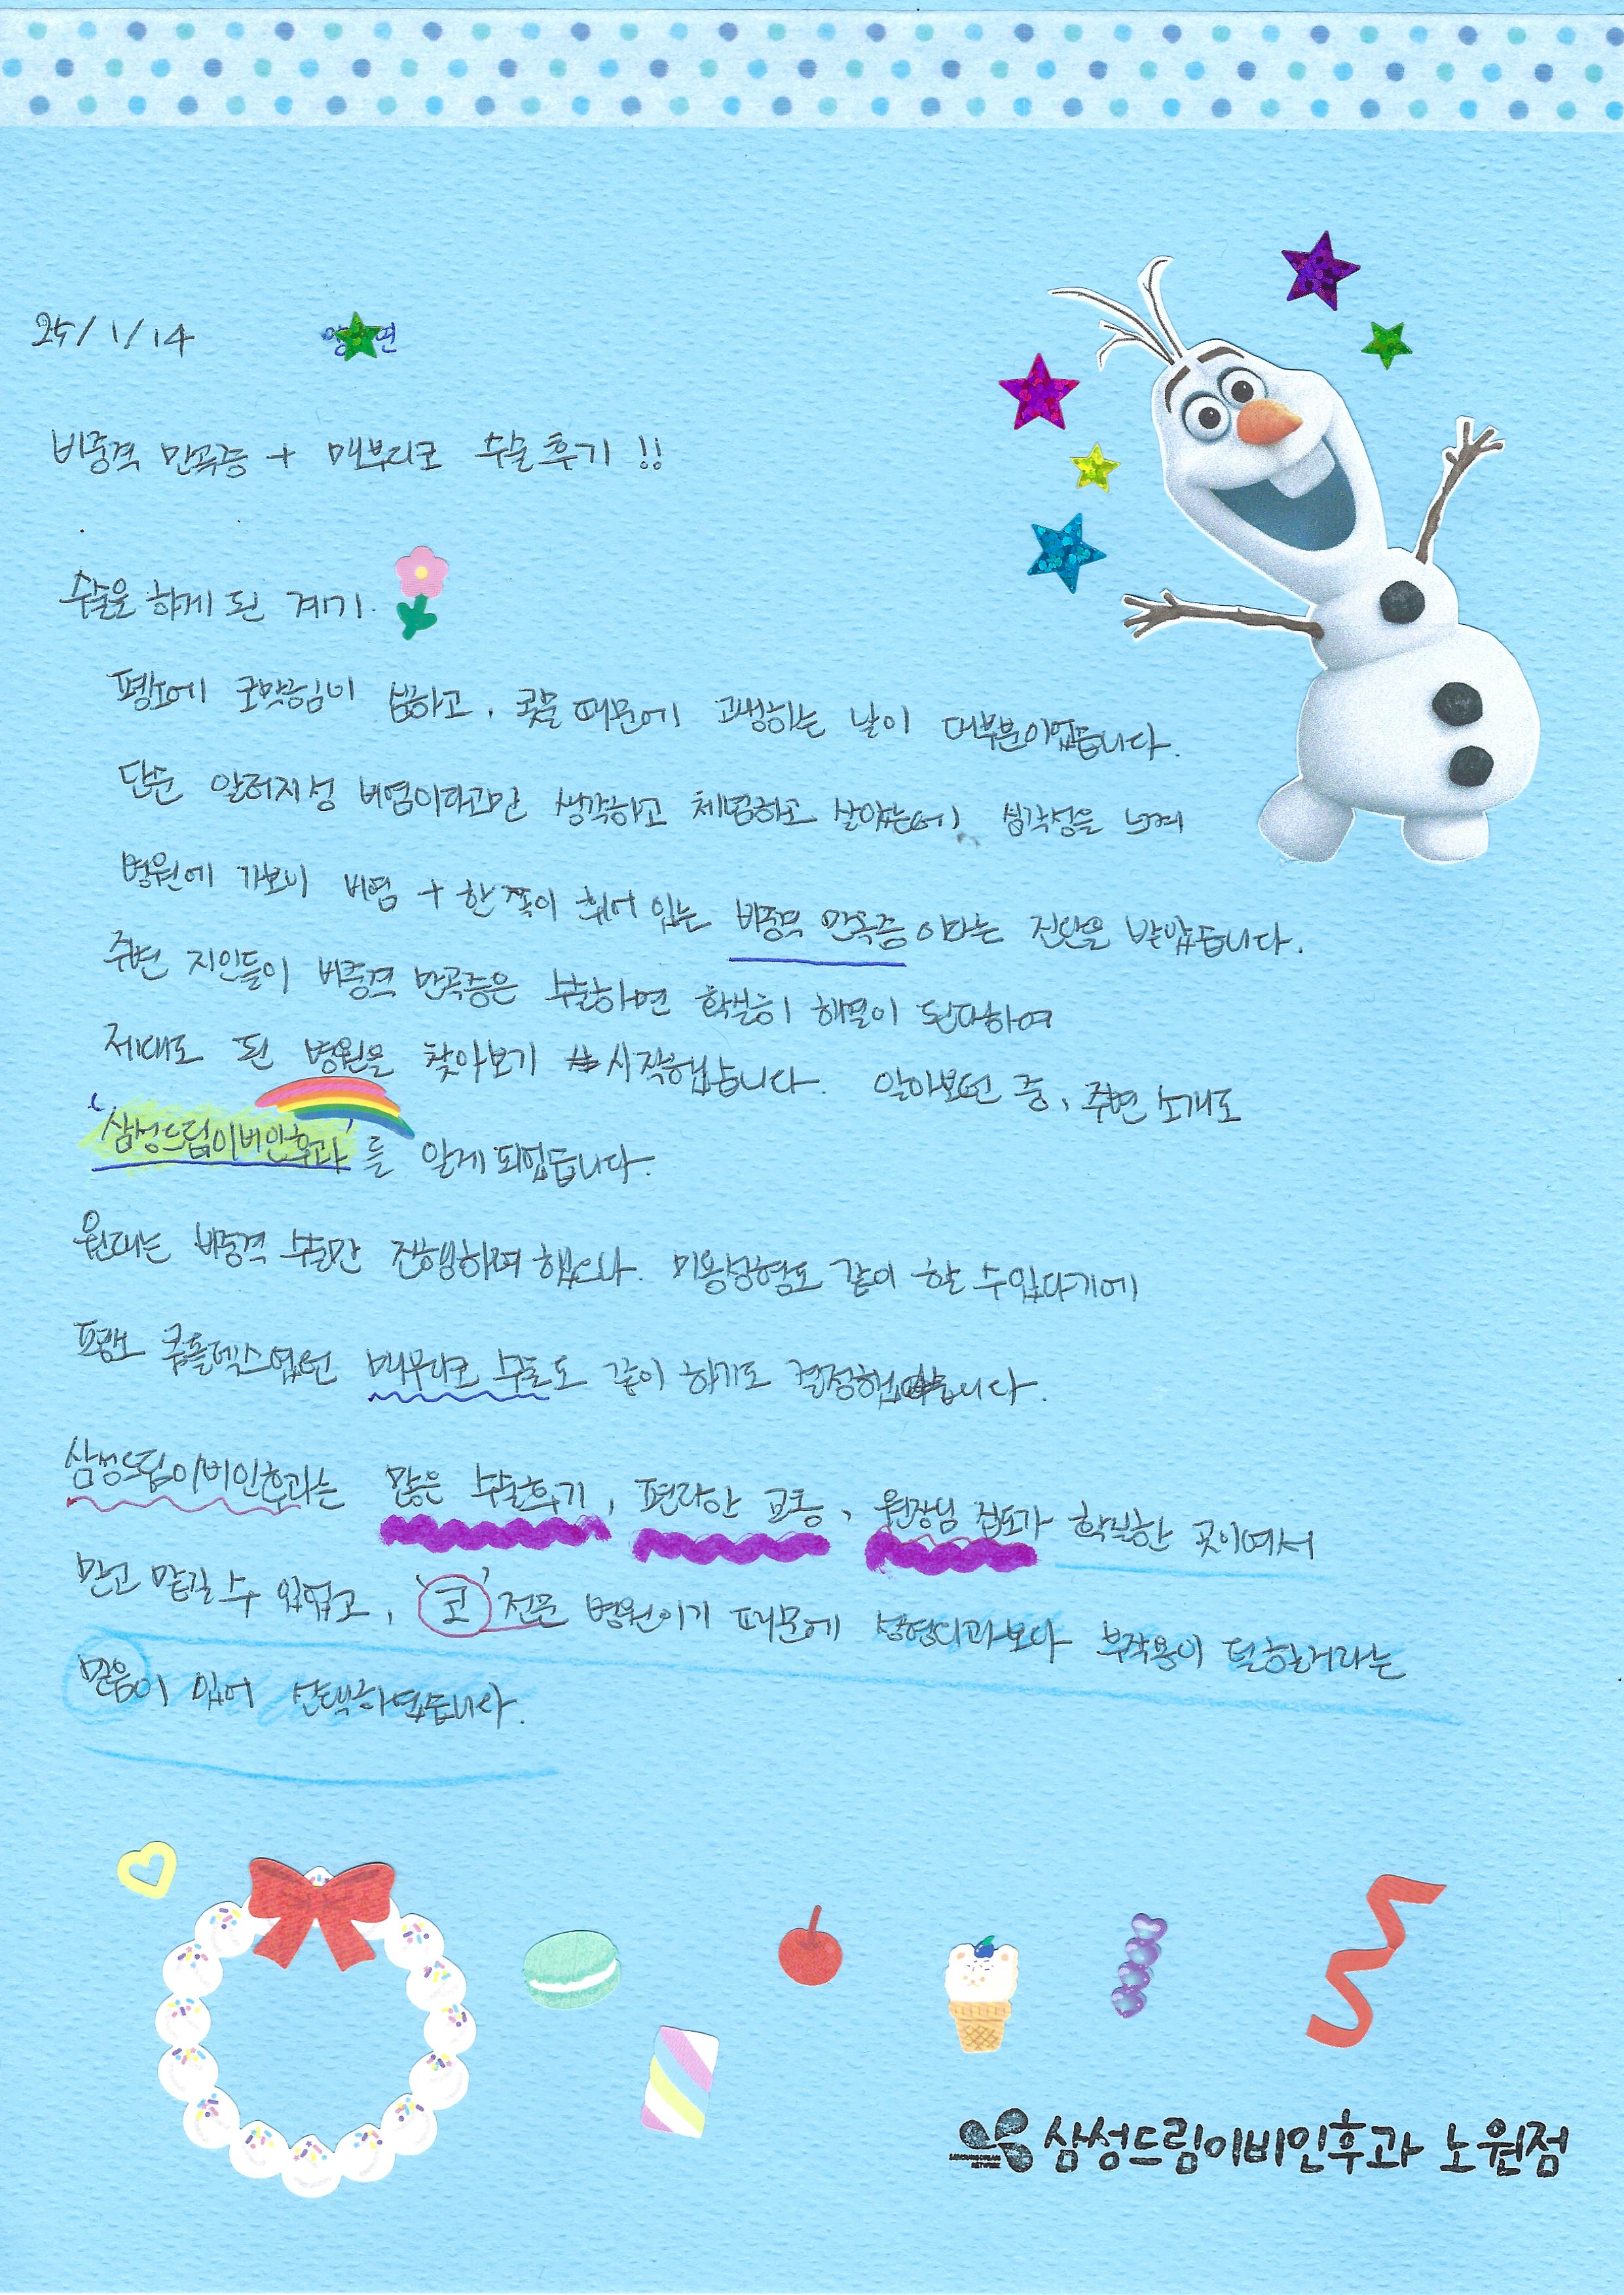 25/1/14
비중격 만곡증 + 매부리코 수술후기!!
수술을 하게 된 계기.
평소에 코막힘이 심하고, 콧물 때문에 고생하는 날이 대부분이었습니다.
단순 알러지성 비염이라고만 생각하고 체념하고 살았는데, 심각성을 느껴
병원에 가보니 비염 + 한쪽이 휘어 있는 비중격 만곡증 이라는 진단을 받았습니다.
주변 지인들이 비중격 만곡증은 수술하면 확실히 해결이 된다하여
제대로 된 병원을 찾아보기 시작했습니다. 알아보던 중, 주변 소개로
'삼성드림이비인후과'를 알게 되었습니다.
원래는 비중격 수술만 진행하려 했으나. 미용성형도 같이 할 수 있다기에
평소 콤플렉스였던 매부리코 수술도 같이 하기로 결정했습니다.
삼성드림이비인후과는 많은 수술후기, 편리한 교통, 원장님 집도가 확실한 곳이여서
믿고 맡길 수 있었고, '코' 전문 병원이기 때문에 성형외과보다 부작용이 덜할거라는
믿음이 있어 선택하였습니다.
삼성드림이비인후과 노원점